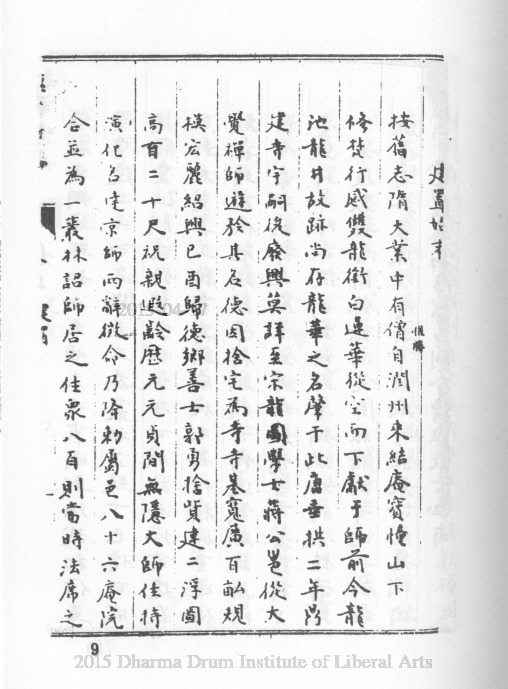 建置始末
按舊志隋大業中有僧自潤州來結庵寶幢山下
惟勝
修梵行感雙龍銜白蓮華從空而下獻于師前今龍
池龍井故跡尚存龍華之名肇于此唐垂拱二年
建寺宇嗣後廢興莫詳至宋龍圖學士蔣公邕從大
覺禪師遊於其名德因捨宅為寺寺基寬廣百畝規
模宏麗紹興已酉歸德鄉善士郭勇捨貲建二浮圖
高百二十尺祝親遐齡歷元元貞間無隱大師住持
演化名定京師而辭徵命乃降勑屬邑八十六庵院
合並為一叢林詔師居之住眾八百則當時法席之
9
2015 Dharma Drum Institute of Liberal Arts